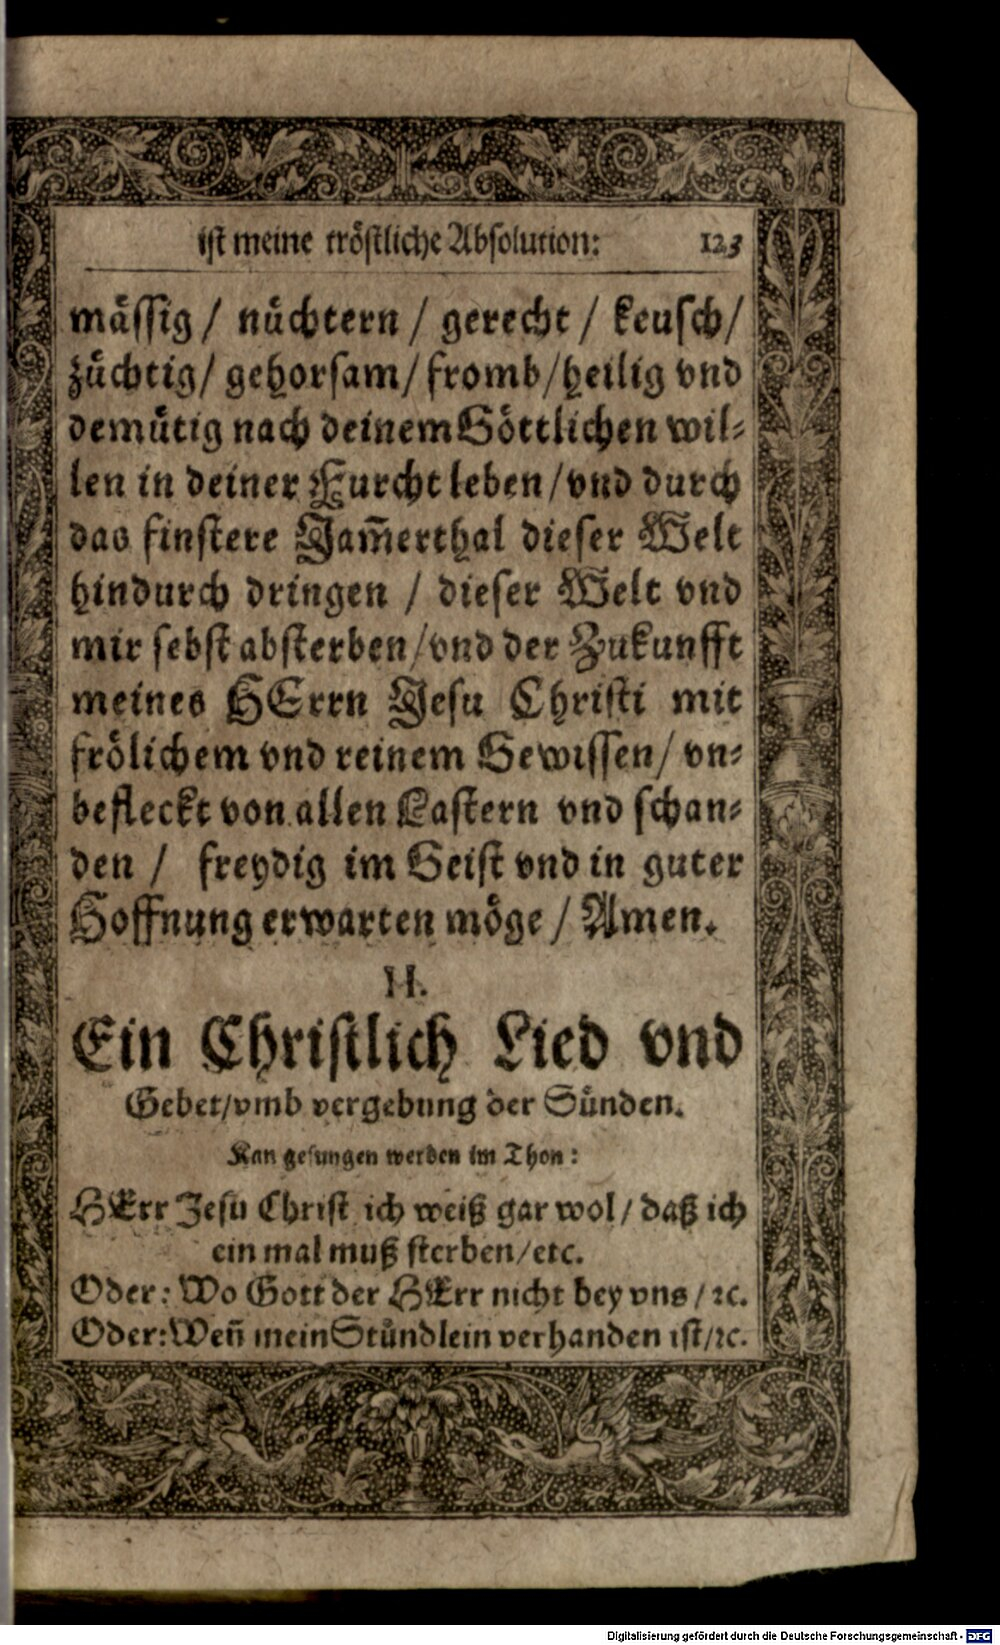 ist meine tröstliche Absolution: 123
mässig / nüchtern / gerecht / keusch /
züchtig / gehorsam / fromb / heilig vnd
demütig nach deinem Göttlichen wil⸗
len in deiner Furcht leben / vnd durch
das finstere Jam̅erthal dieser Welt
hindurch dringen / dieser Welt vnd
mir sebst absterben / vnd der Zukunfft
meines HErrn Jesu Christi mit
frölichem vnd reinem Gewissen / vn⸗
befleckt von allen Lastern vnd schan⸗
den / freydig im Geist vnd in guter
Hoffnung erwarten möge / Amen.
II.
Ein Christlich Lied vnd
Gebet / vmb vergebung der Sünden.
Kan gesungen werden im Thon :
HErr Jesu Christ ich weiß gar wol / daß ich
ein mal muß sterben / etc.
Oder : Wo Gott der HErr nicht bey vns / ꝛc.
Oder : Wen̅ mein Stündlein verhanden ist / ꝛc.
Digitalisierung gefördert durch die Deutsche Forschungsgemeinschaft - DFG